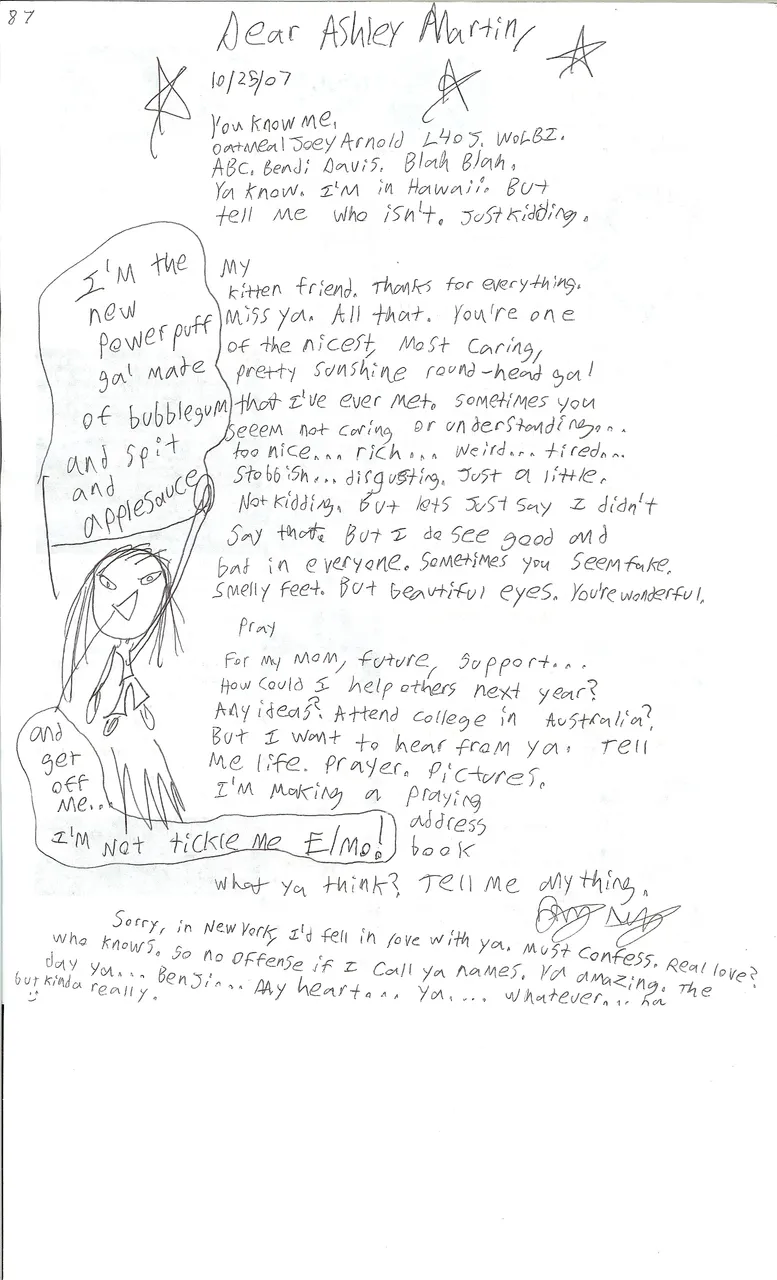 87
Dear Ashley Martin,
10/25/07
You know me,
oatmeal Joey Arnold L4OJ. WOLBI.
ABC. Bendi Davis. Blah Blah.
Ya know. I'm in Hawaii. But
tell me who isn't. Just kidding.
I'm the
new
Powerpuff
gal made
of bubblegum
and spit
and
applesauce
My
kitten friend. Thanks for everything.
Miss ya. All that. You're one
of the nicest, most caring,
pretty sunshine round-head gal
that I've ever met. Sometimes you
seeem not caring or understanding...
too nice... rich... weird... tired...
Stobbish... disgusting. Just a little.
Not kidding. But lets just say I didn't
say that. But I do see good and
bad in everyone. Sometimes you seem fake.
Smelly feet. But beautiful eyes. You're wonderful.
Pray
For my mom, future, support...
How could I help others next year?
Any ideas? Attend college in Australia?
But I want to hear from ya. Tell
me life. Prayer. Pictures.
I'm making a praying
address
book
and
get
off
me...
I'm not tickle me Elmo!
What ya think? Tell me anything.
Sorry, in New York, I'd fell in love with ya. Must confess. Real love?
who knows. So no offense if I call ya names. Ya amazing. The
day ya... Benji... My heart... Ya.... whatever... ha
but kinda really.